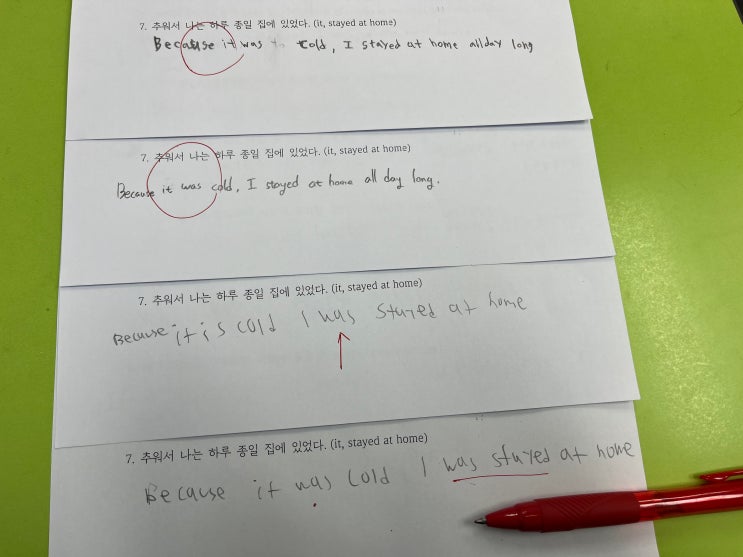 7. 추워서 나는 하루 종일 집에 있었다. (it, stayed at home)
Because it was to cold, I stayed at home allday long
7. 추워서 나는 하루 종일 집에 있었다. (it, stayed at home)
Because it was cold, I stayed at home all day long.
7. 추워서 나는 하루 종일 집에 있었다. (it, stayed at home)
Because it is cold I was stured at home
7. 추워서 나는 하루 종일 집에 있었다. (it, stayed at home)
Because it was cold I was stured at home